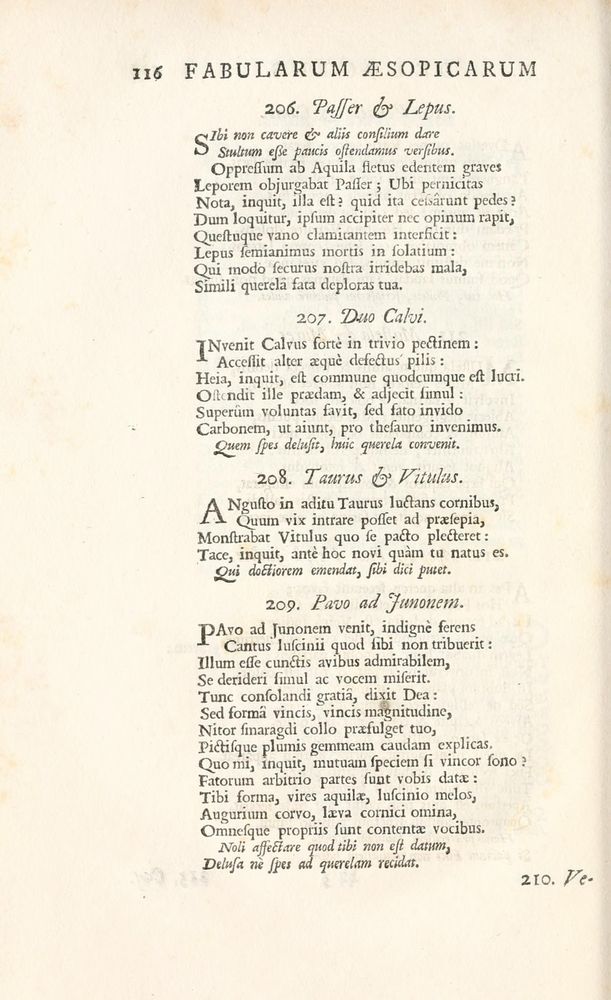 116 FABULARUM ÆSOPICARUM
206. Paſſer & Lepus.
SIbi non cavere & aliis conſilium dare
Stultum eſſe paucis oſtendamus verſibus.
Oppreſſum ab Aquila fletus edentem graves
Leporem objurgabat Paſſer; Ubi pernicitas
Nota, inquit, illa eſt? quid ita ceſsârunt pedes?
Dum loquitur, ipſum accipiter nec opinum rapit,
Queſtuque vano clamitantem interficit:
Lepus ſemianimus mortis in ſolatium:
Qui modò ſecurus noſtra irridebas mala,
Simili querelâ fata deploras tua.
207. Duo Calvi.
INvenit Calvus fortè in trivio pectinem:
Acceſſit alter æquè defectus pilis:
Heia, inquit, eſt commune quodcumque eſt lucri.
Oſtendit ille prædam, & adjecit ſimul:
Superûm voluntas favit, ſed fato invido
Carbonem, ut aiunt, pro theſauro invenimus.
Quem ſpes deluſit, huic querela convenit.
208. Taurus & Vitulus.
ANguſto in aditu Taurus luctans cornibus,
Quum vix intrare poſſet ad præſepia,
Monſtrabat Vitulus quo ſe pacto plecteret:
Tace, inquit, antè hoc novi quàm tu natus es.
Qui doctiorem emendat, ſibi dici putet.
209. Pavo ad Junonem.
PAvo ad Junonem venit, indignè ferens
Cantus luſcinii quod ſibi non tribuerit:
Illum eſſe cunctis avibus admirabilem,
Se derideri ſimul ac vocem miſerit.
Tunc conſolandi gratiâ, dixit Dea:
Sed formâ vincis, vincis magnitudine,
Nitor ſmaragdi collo præfulget tuo,
Pictiſque plumis gemmeam caudam explicas.
Quo mi, inquit, mutuam ſpeciem ſi vincor ſono?
Fatorum arbitrio partes ſunt vobis datæ:
Tibi forma, vires aquilæ, luſcinio melos,
Augurium corvo, læva cornici omina,
Omneſque propriis ſunt contentæ vocibus.
Noli affectare quod tibi non eſt datum,
Deluſa nè ſpes ad querelam recidat.
210. Ve-